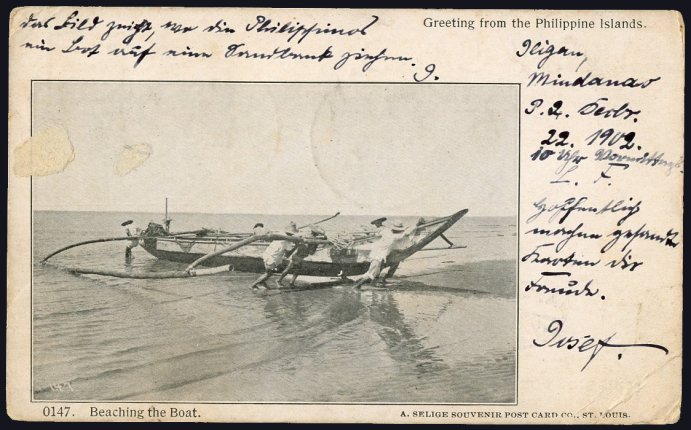 das Bild zeigt, wo die Philippinos
ein Bot auf eine Sandbank ziehen.
J.
Greeting from the Philippine Islands.
Iligan,
Mindanao
P. I. Febr.
22. 1902.
10 Uhr Vormittags
L. F.
Hoffentlich
machen gesandte
Karten dir
Freude.
Josef.
1427
0147. Beaching the Boat.
A. SELIGE SOUVENIR POST CARD CO., ST. LOUIS.